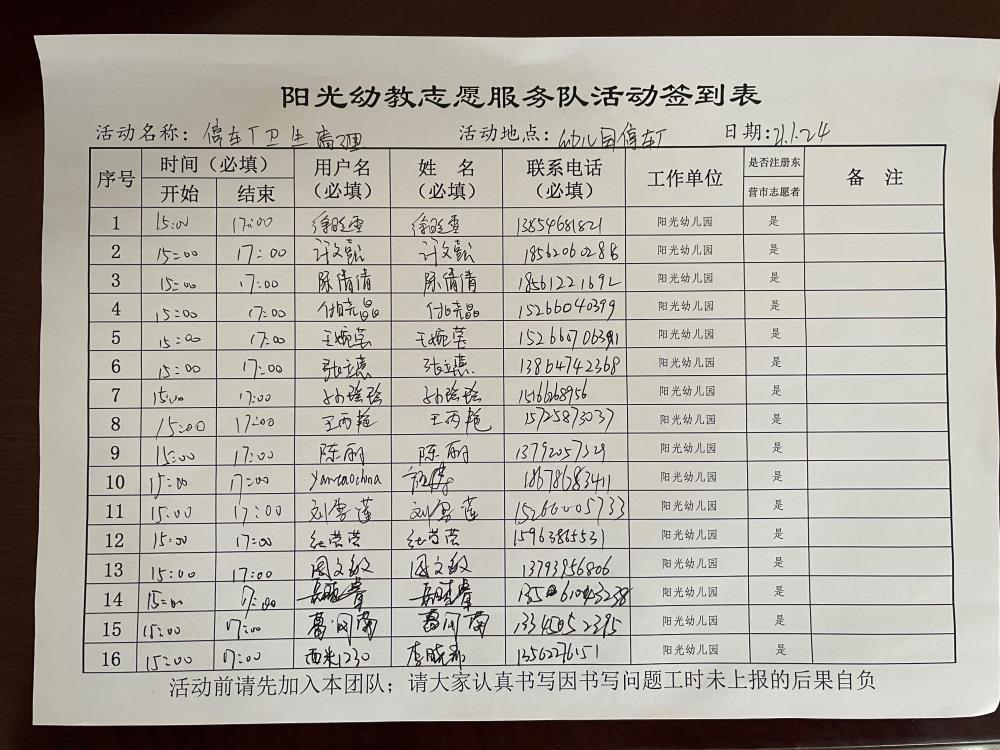 阳光幼教志愿服务队活动签到表
活动名称: 停车厂卫生清理 活动地点: 幼儿园停车厂 日期: 21.1.24
序号 时间（必填） 用户名（必填） 姓 名（必填） 联系电话（必填） 工作单位 是否注册东营市志愿者 备 注
开始 结束
1 15:00 17:00 徐晓雪 徐晓雪 13854681821 阳光幼儿园 是
2 15:00 17:00 许文 许文 18562060286 阳光幼儿园 是
3 15:00 17:00 陈倩倩 陈倩倩 18561221692 阳光幼儿园 是
4 15:00 17:00 付晓晶 付晓晶 15266040399 阳光幼儿园 是
5 15:00 17:00 王婉莹 王婉莹 阳光幼儿园 是
6 15:00 17:00 张立 张立 13864742368 阳光幼儿园 是
7 15:00 17:00 孙 孙 阳光幼儿园 是
8 15:00 17:00 王丙艳 王丙艳 15725873037 阳光幼儿园 是
9 15:00 17:00 陈丽 陈丽 13792057329 阳光幼儿园 是
10 15:00 17:00 yantaochina 18678683411 阳光幼儿园 是
11 15:00 17:00 刘雪莲 刘雪莲 15266005733 阳光幼儿园 是
12 15:00 17:00 纪营营 纪营营 15963865531 阳光幼儿园 是
13 15:00 17:00 周文敏 周文敏 13793956806 阳光幼儿园 是
14 15:00 17:00 阳光幼儿园 是
15 15:00 17:00 葛冈南 葛冈南 13345052395 阳光幼儿园 是
16 15:00 17:00 西米1230 李晓 13562276151 阳光幼儿园 是
活动前请先加入本团队；请大家认真书写因书写问题工时未上报的后果自负